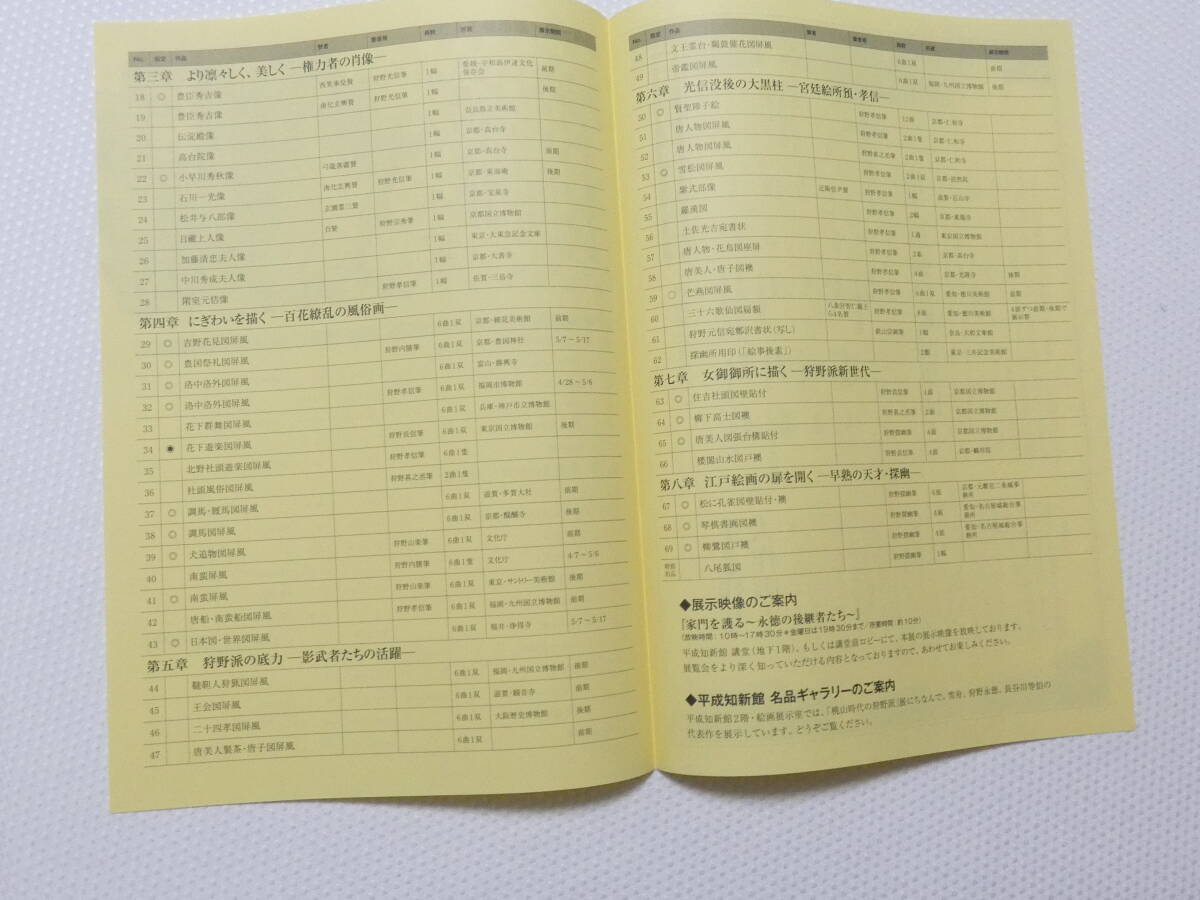 No. 指定 作品 賛者 筆者等 員数 所蔵 展示期間
第三章 より凛々しく、美しく ―権力者の肖像―
18 ◎ 豊臣秀吉像 西笑承兌賛 狩野光信筆 1幅 愛媛・宇和島伊達文化保存会 前期
19 豊臣秀吉像 南化玄興賛 狩野光信筆 1幅 後期
20 伝淀殿像 1幅 奈良県立美術館
21 高台院像 1幅 京都・高台寺
22 ◎ 小早川秀秋像 1幅 京都・高台寺 後期
23 石川一光像 南化玄興賛 狩野光信筆 1幅 京都・東海庵 後期
24 松井与八郎像 1幅 京都・宝泉寺
25 日禛上人像 自賛 狩野宗秀筆 1幅 京都国立博物館
26 加藤清忠夫人像 1幅 東京・大東急記念文庫
27 中川秀成夫人像 1幅 京都・大善寺
28 閑室元佶像 狩野孝信筆 1幅 佐賀・三岳寺
第四章 にぎわいを描く ―百花繚乱の風俗画―
29 ◎ 吉野花見図屏風 6曲1双 京都・細見美術館 前期
30 ◎ 豊国祭礼図屏風 狩野内膳筆 6曲1双 京都・豊国神社 5/7～5/17
31 ◎ 洛中洛外図屏風 6曲1双 富山・勝興寺
32 ◎ 洛中洛外図屏風 狩野孝信筆 6曲1双 福岡市博物館 4/28～5/6
33 花下群舞図屏風 6曲1双 兵庫・神戸市立博物館
34 ◉ 花下遊楽図屏風 狩野長信筆 6曲1双 東京国立博物館 後期
35 北野社頭遊楽図屏風 狩野孝信筆 6曲1隻
36 社頭風俗図屏風 狩野甚之丞筆 2曲1隻
37 ◎ 調馬・厩馬図屏風 6曲1双 滋賀・多賀大社 前期
38 ◎ 調馬図屏風 6曲1双 京都・醍醐寺 後期
39 ◎ 犬追物図屏風 狩野山楽筆 6曲1双 文化庁 前期
40 南蛮屏風 狩野内膳筆 6曲1隻 文化庁 4/7～5/6
41 ◎ 南蛮屏風 狩野山楽筆 6曲1双 東京・サントリー美術館 後期
42 唐船・南蛮船図屏風 狩野孝信筆 6曲1双 福岡・九州国立博物館 前期
43 ◎ 日本図・世界図屏風 6曲1双 福井・浄得寺 5/7～5/17
第五章 狩野派の底力 ―影武者たちの活躍―
44 韃靼人狩猟図屏風 6曲1双 福岡・九州国立博物館 前期
45 王会図屏風 6曲1双 滋賀・観音寺 前期
46 二十四孝図屏風 6曲1双 大阪歴史博物館 後期
47 唐美人製茶・唐子図屏風 6曲1双 前期
No. 指定 作品 賛者 筆者等 員数 所蔵 展示期間
48 文王霊台・羯鼓催花図屏風 6曲1双 後期
49 帝鑑図屏風 6曲1双 福岡・九州国立博物館 後期
第六章 光信没後の大黒柱 ―宮廷絵所預・孝信―
50 ◎ 賢聖障子絵 狩野孝信筆 12面 京都・仁和寺
51 唐人物図屏風 狩野孝信筆 2曲1隻 京都・仁和寺
52 唐人物図屏風 狩野甚之丞筆 2曲1隻 京都・仁和寺
53 ◎ 雪松図屏風 狩野孝信筆 2曲1双
54 紫式部像 近衛信尹賛 狩野孝信筆 1幅 滋賀・石山寺
55 羅漢図 狩野孝信筆 2幅 京都・東福寺
56 土佐光吉宛書状 狩野孝信筆 1通 東京国立博物館
57 唐人物・花鳥図座屏 狩野孝信筆 2基 京都・高台寺
58 唐美人・唐子図襖 狩野孝信筆 4面 京都・光隆寺 後期
59 ○ 芒画図屏風 狩野孝信筆 6曲1双 愛知・徳川美術館 前期
60 三十六歌仙図扁額 八条宮智仁親王ら4名賛 狩野孝信筆 8面 愛知・徳川美術館 4面ずつ前期・後期で展示替
61 狩野元信宛鄭沢書状(写し) 1幅 奈良・大和文華館
62 探幽所用印(「絵事後素」) 2顆 東京・三井記念美術館
第七章 女御御所に描く ―狩野派新世代―
63 ◎ 住吉社頭図壁貼付 狩野長信筆 1面 京都国立博物館
64 ◎ 柳下高士図襖 狩野甚之丞筆 2面 京都国立博物館
65 ◎ 唐美人図張台構貼付 狩野探幽筆 4面 京都国立博物館
66 楼閣山水図戸襖 狩野貞信筆 4面
第八章 江戸絵画の扉を開く ―早熟の天才・探幽―
67 ◎ 松に孔雀図壁貼付・襖 狩野探幽筆 6面 京都・元離宮二条城事務所
68 ◎ 琴棋書画図襖 狩野探幽筆 4面 愛知・名古屋城総合事務所
69 ◎ 柳鷺図戸襖 狩野探幽筆 4面 愛知・名古屋城総合事務所
特別出品 八尾狐図 狩野探幽筆 1幅
◆展示映像のご案内
『家門を護る～永徳の後継者たち～』
(放映時間：10時～17時30分＊金曜日は19時30分まで／所要時間 約10分)
平成知新館 講堂(地下1階)、もしくは講堂前ロビーにて、本展の展示映像を放映しております。
展覧会をより深く知っていただける内容となっておりますので、あわせてお楽しみください。
◆平成知新館 名品ギャラリーのご案内
平成知新館2階・絵画展示室では、「桃山時代の狩野派」展にちなんで、雪舟、狩野永徳、長谷川等伯の
代表作を展示しています。どうぞご覧ください。